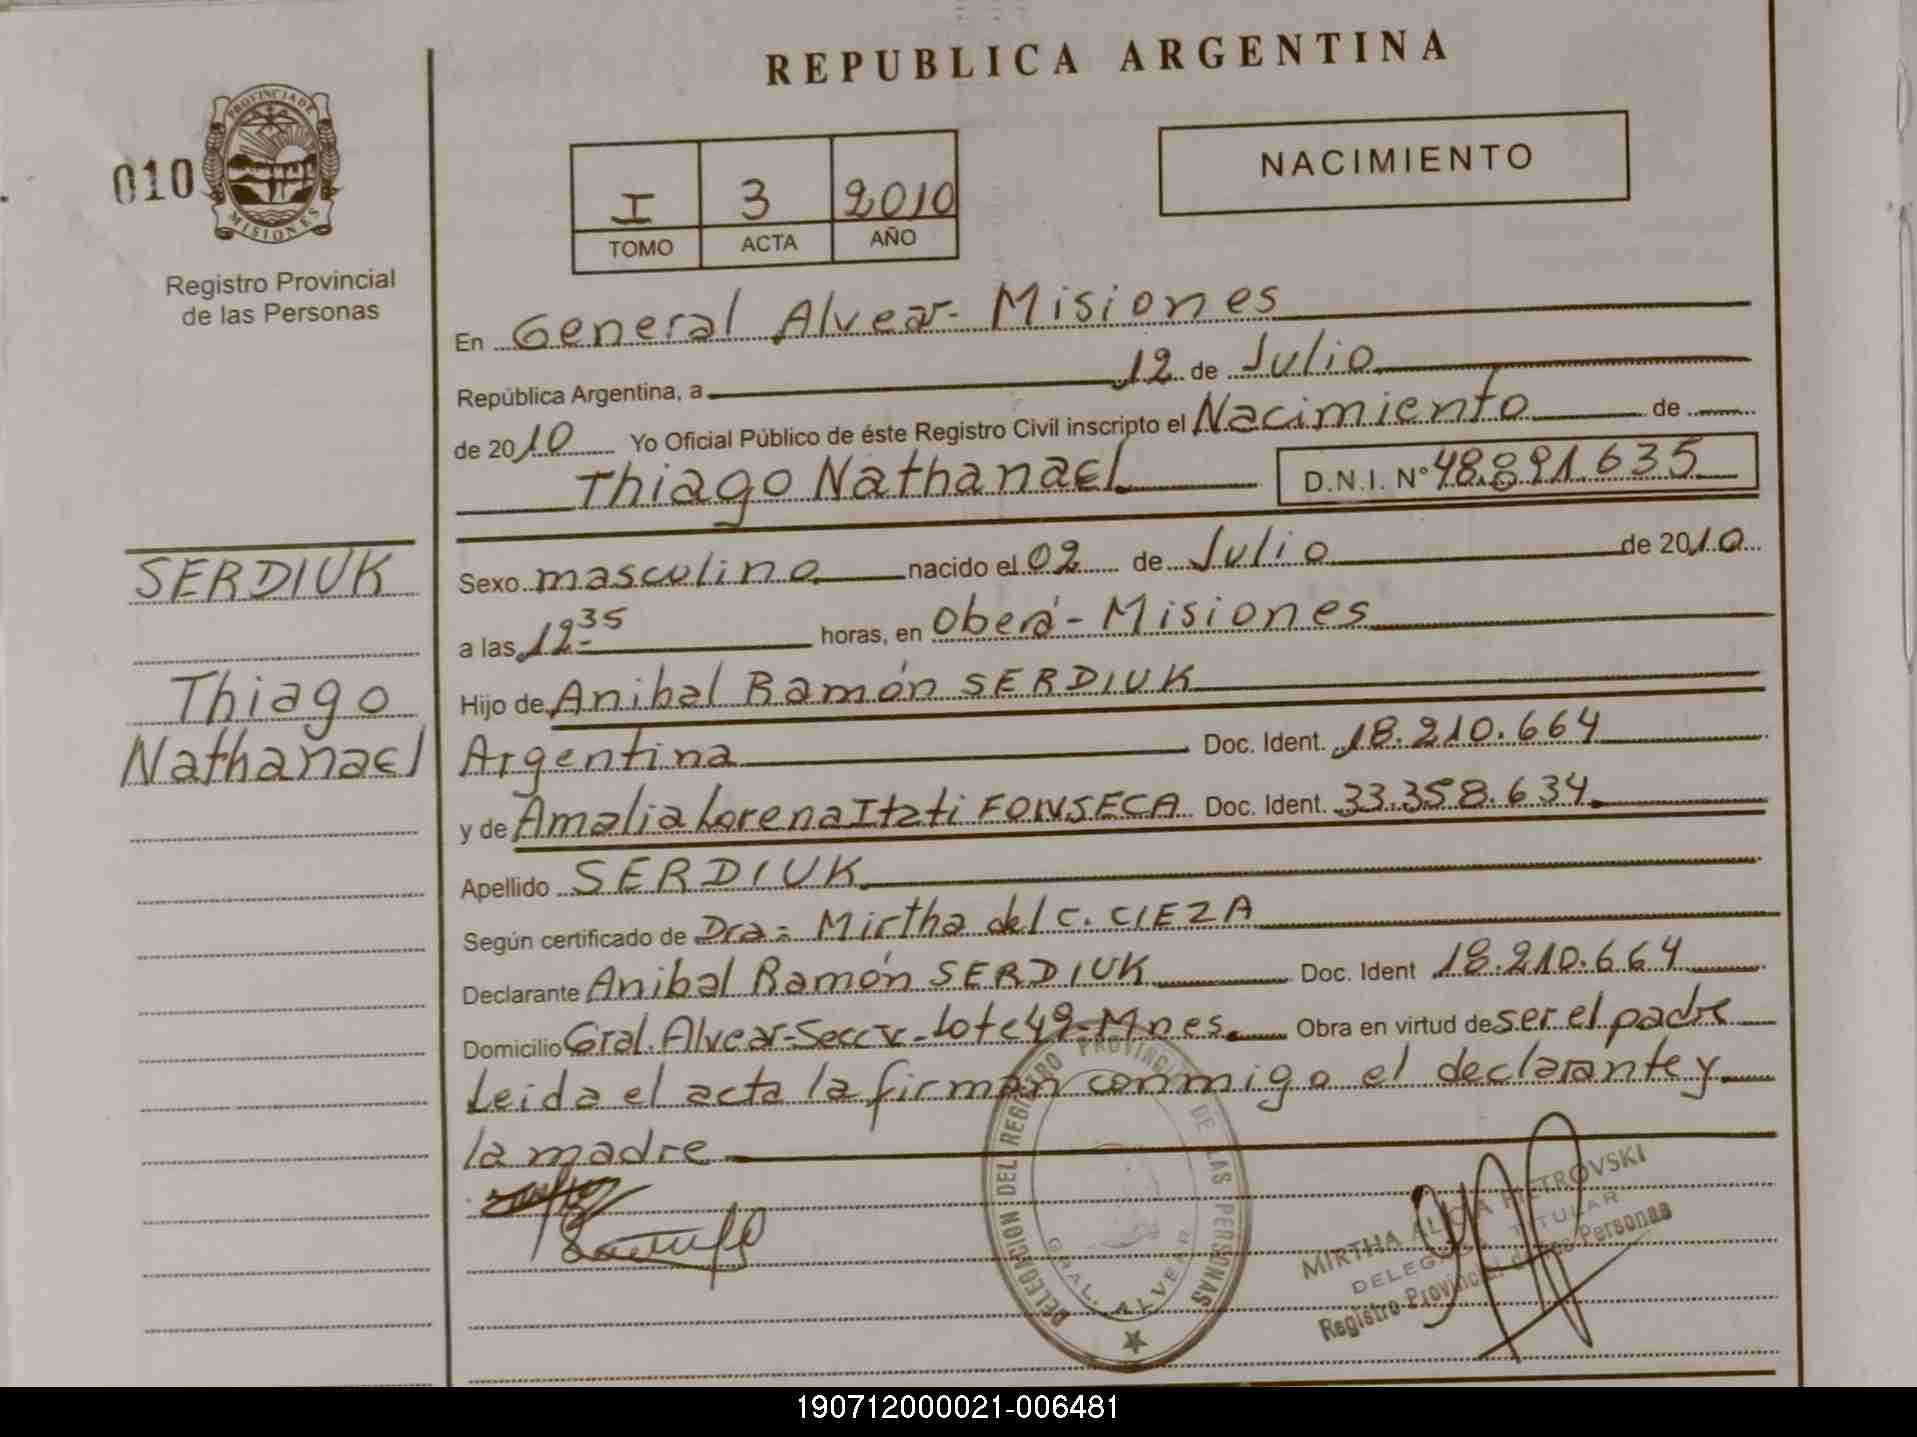 REPUBLICA ARGENTINA
010
PROVINCIA DE
MISIONES
Registro Provincial
de las Personas
I 3 2010
TOMO ACTA AÑO
NACIMIENTO
En General Alvear- Misiones
República Argentina, a 12 de Julio
de 2010 Yo Oficial Público de éste Registro Civil inscripto el Nacimiento de
Thiago Nathanael D.N.I. Nº 48.891.635
SERDIUK
Thiago
Nathanael
Sexo masculino nacido el 02 de Julio de 2010
a las 12-35 horas, en Oberá- Misiones
Hijo de Anibal Ramón SERDIUK
Argentina Doc. Ident. 18.210.664
y de Amalia Lorena Itati FONSECA Doc. Ident. 33.358.634
Apellido SERDIUK
Según certificado de Dra- Mirtha del C. CIEZA
Declarante Anibal Ramón SERDIUK Doc. Ident 18.210.664
Domicilio Gral. Alvear-Secc V- lote 49-Mnes. Obra en virtud de ser el padre
Leida el acta la firman conmigo el declarante y
la madre
DELEGACION DEL REGISTRO PROVINCIAL DE LAS PERSONAS
GRAL. ALVEAR
MIRTHA ALICIA PIETROVSKI
DELEGADA TITULAR
Registro Provincial de las Personas
190712000021-006481